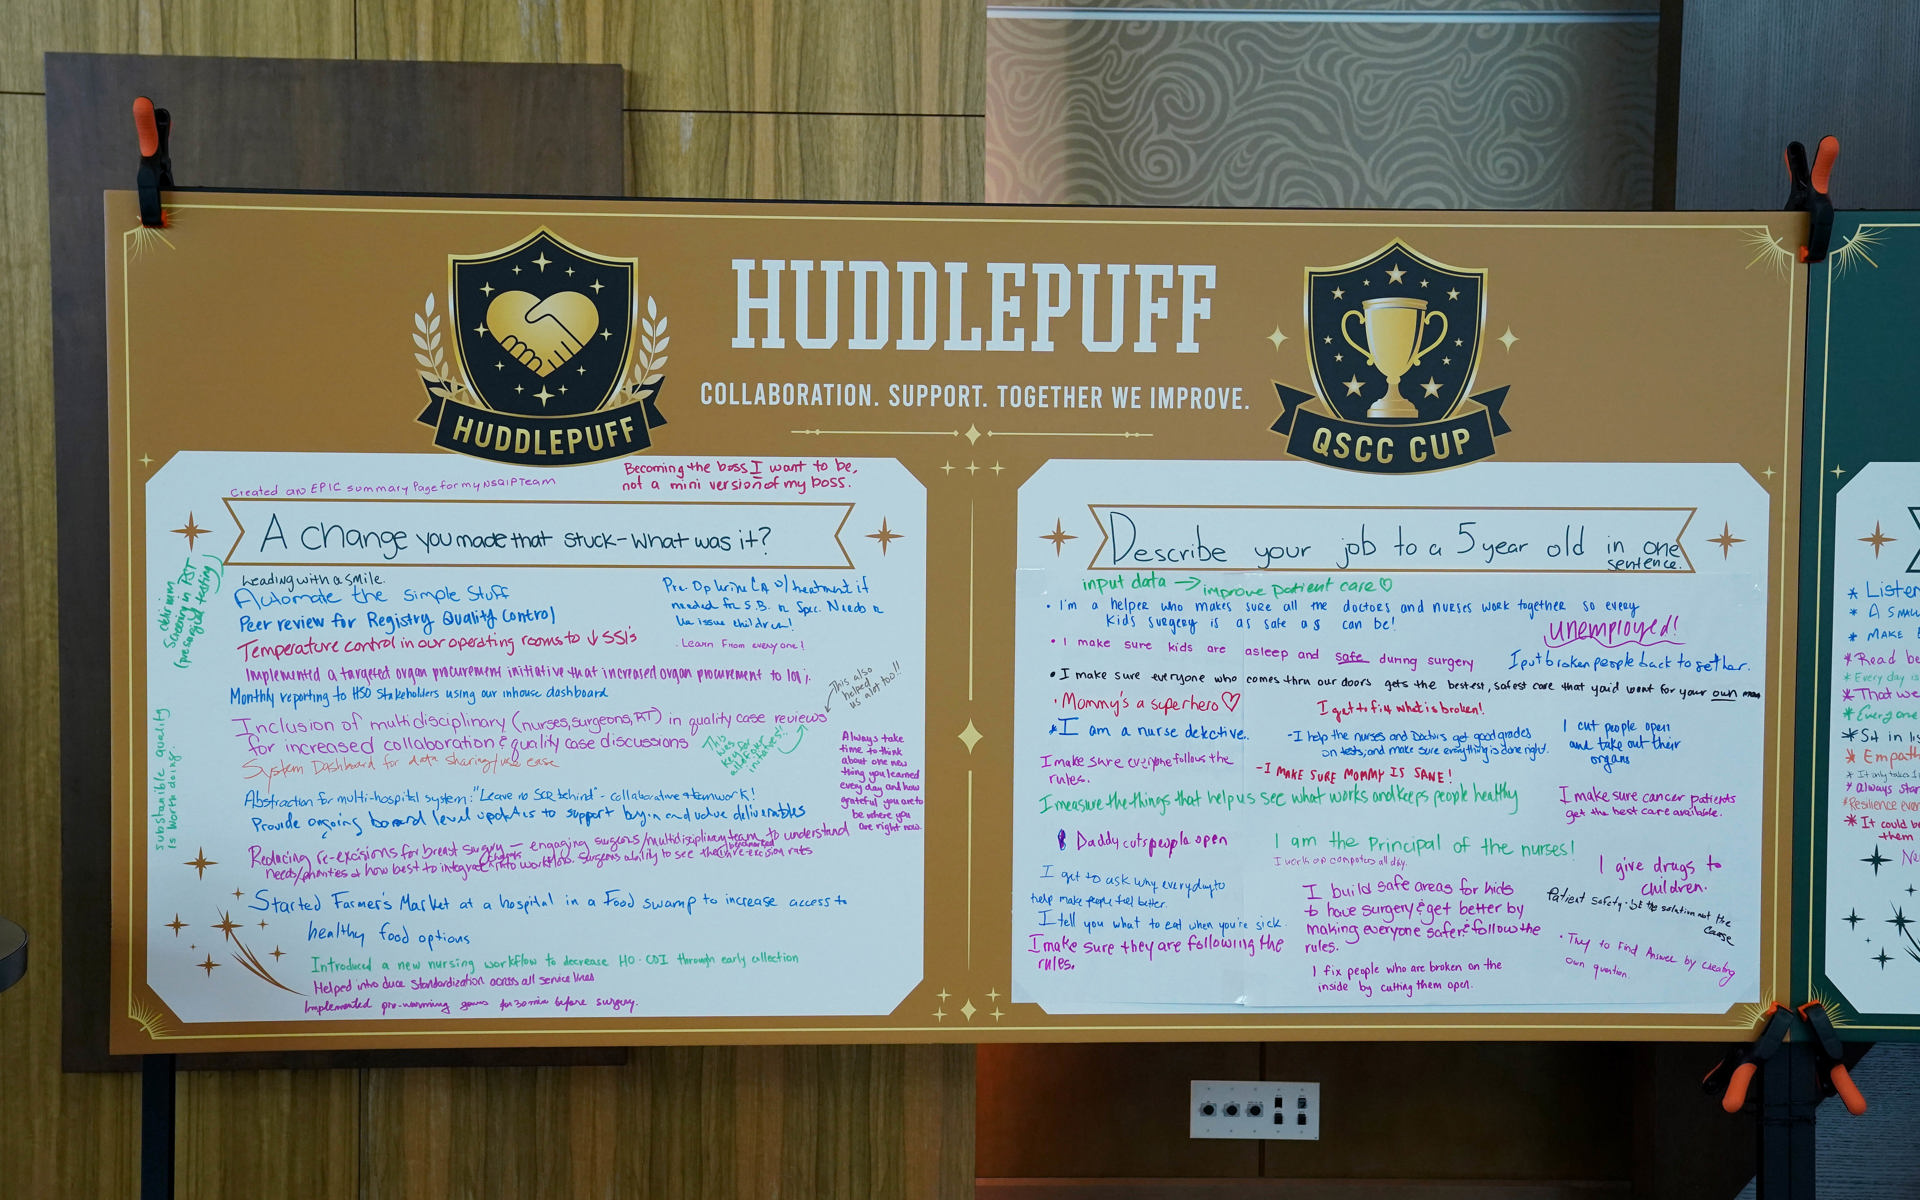 HUDDLEPUFF
HUDDLEPUFF
COLLABORATION. SUPPORT. TOGETHER WE IMPROVE.
QSCC CUP
Created an EPIC summary Page for my NSQIP Team
Becoming the boss I want to be,
not a mini version of my boss.
A change you made that stuck-What was it?
Leading with a smile.
Automate the simple stuff
Peer review for Registry Quality Control
Temperature control in our operating rooms to ↓ SSI's
Pre-Op Urine CA w/ treatment if
needed for S.B. n Spec. Needs n
issue children!
. Learn From everyone!
Obtaining
Screening in PST
(presurgical testing)
Implemented a targeted organ procurement initiative that increased organ procurement to
Monthly reporting to HSO Stakeholders using our inhouse dashboard
Inclusion of multidisciplinary (nurses, surgeons, RT) in quality case reviews
for increased collaboration & quality case discussions
This also
helped
us a lot too!!
This
was
key for
all of our
initiatives!!
System Dashboard for data sharing/use case
Always take
time to think
about one new
thing you learned
every day and how
grateful you are to
be where you
are right now.
Substanible quality
is worth doing.
Abstraction for multi-hospital system: "Leave no SCR behind" - collaborative + teamwork!
Provide ongoing board level updates to support buy-in and value deliverables
Reducing re-excisions for breast surgery - engaging surgeons/multidisciplinary team to understand
needs/priorities & how best to integrate into workflow. Surgeons ability to see their re-excision rats
Started Farmer's Market at a hospital in a Food swamp to increase access to
healthy food options
Introduced a new nursing workflow to decrease HO-CDI through early collection
Helped introduce Standardization across all service lines
Implemented pre-warming gowns for 30 mins before surgery.
Describe your job to a 5 year old in one
sentence.
input data → improve patient care ♡
• I'm a helper who makes sure all the doctors and nurses work together so every
kids surgery is as safe as can be!
Unemployed!
• I make sure kids are asleep and safe during surgery
I put broken people back together.
• I make sure everyone who comes thru our doors gets the bestest, safest care that you'd want for your own mom
• Mommy's a superhero ♡
I get to fix what is broken!
*I am a nurse detective.
-I help the nurses and Doctors get good grades
on tests, and make sure everything is done right.
I cut people open
and take out their
organs
I make sure everyone follows the
rules.
-I MAKE SURE MOMMY IS SANE!
I measure the things that help us see what works and keeps people healthy
I make sure cancer patients
get the best care available.
Daddy cuts people open
I am the Principal of the nurses!
I work on computers all day.
I give drugs to
children.
I get to ask why everyday to
help make people feel better.
I build safe areas for kids
to have surgery & get better by
making everyone safer & follow the
rules.
Patient safety - be the solution not the
cause
I tell you what to eat when you're sick.
I make sure they are following the
rules.
• Try to Find Answer by creating
own question.
I fix people who are broken on the
inside by cutting them open.
* Listen
* A small
* MAKE
*Read be
*Every day is
*That we
*Everyone
*Sit in
* Empath
*It only takes 1
* always star
*Resilience ever
* It could b
them